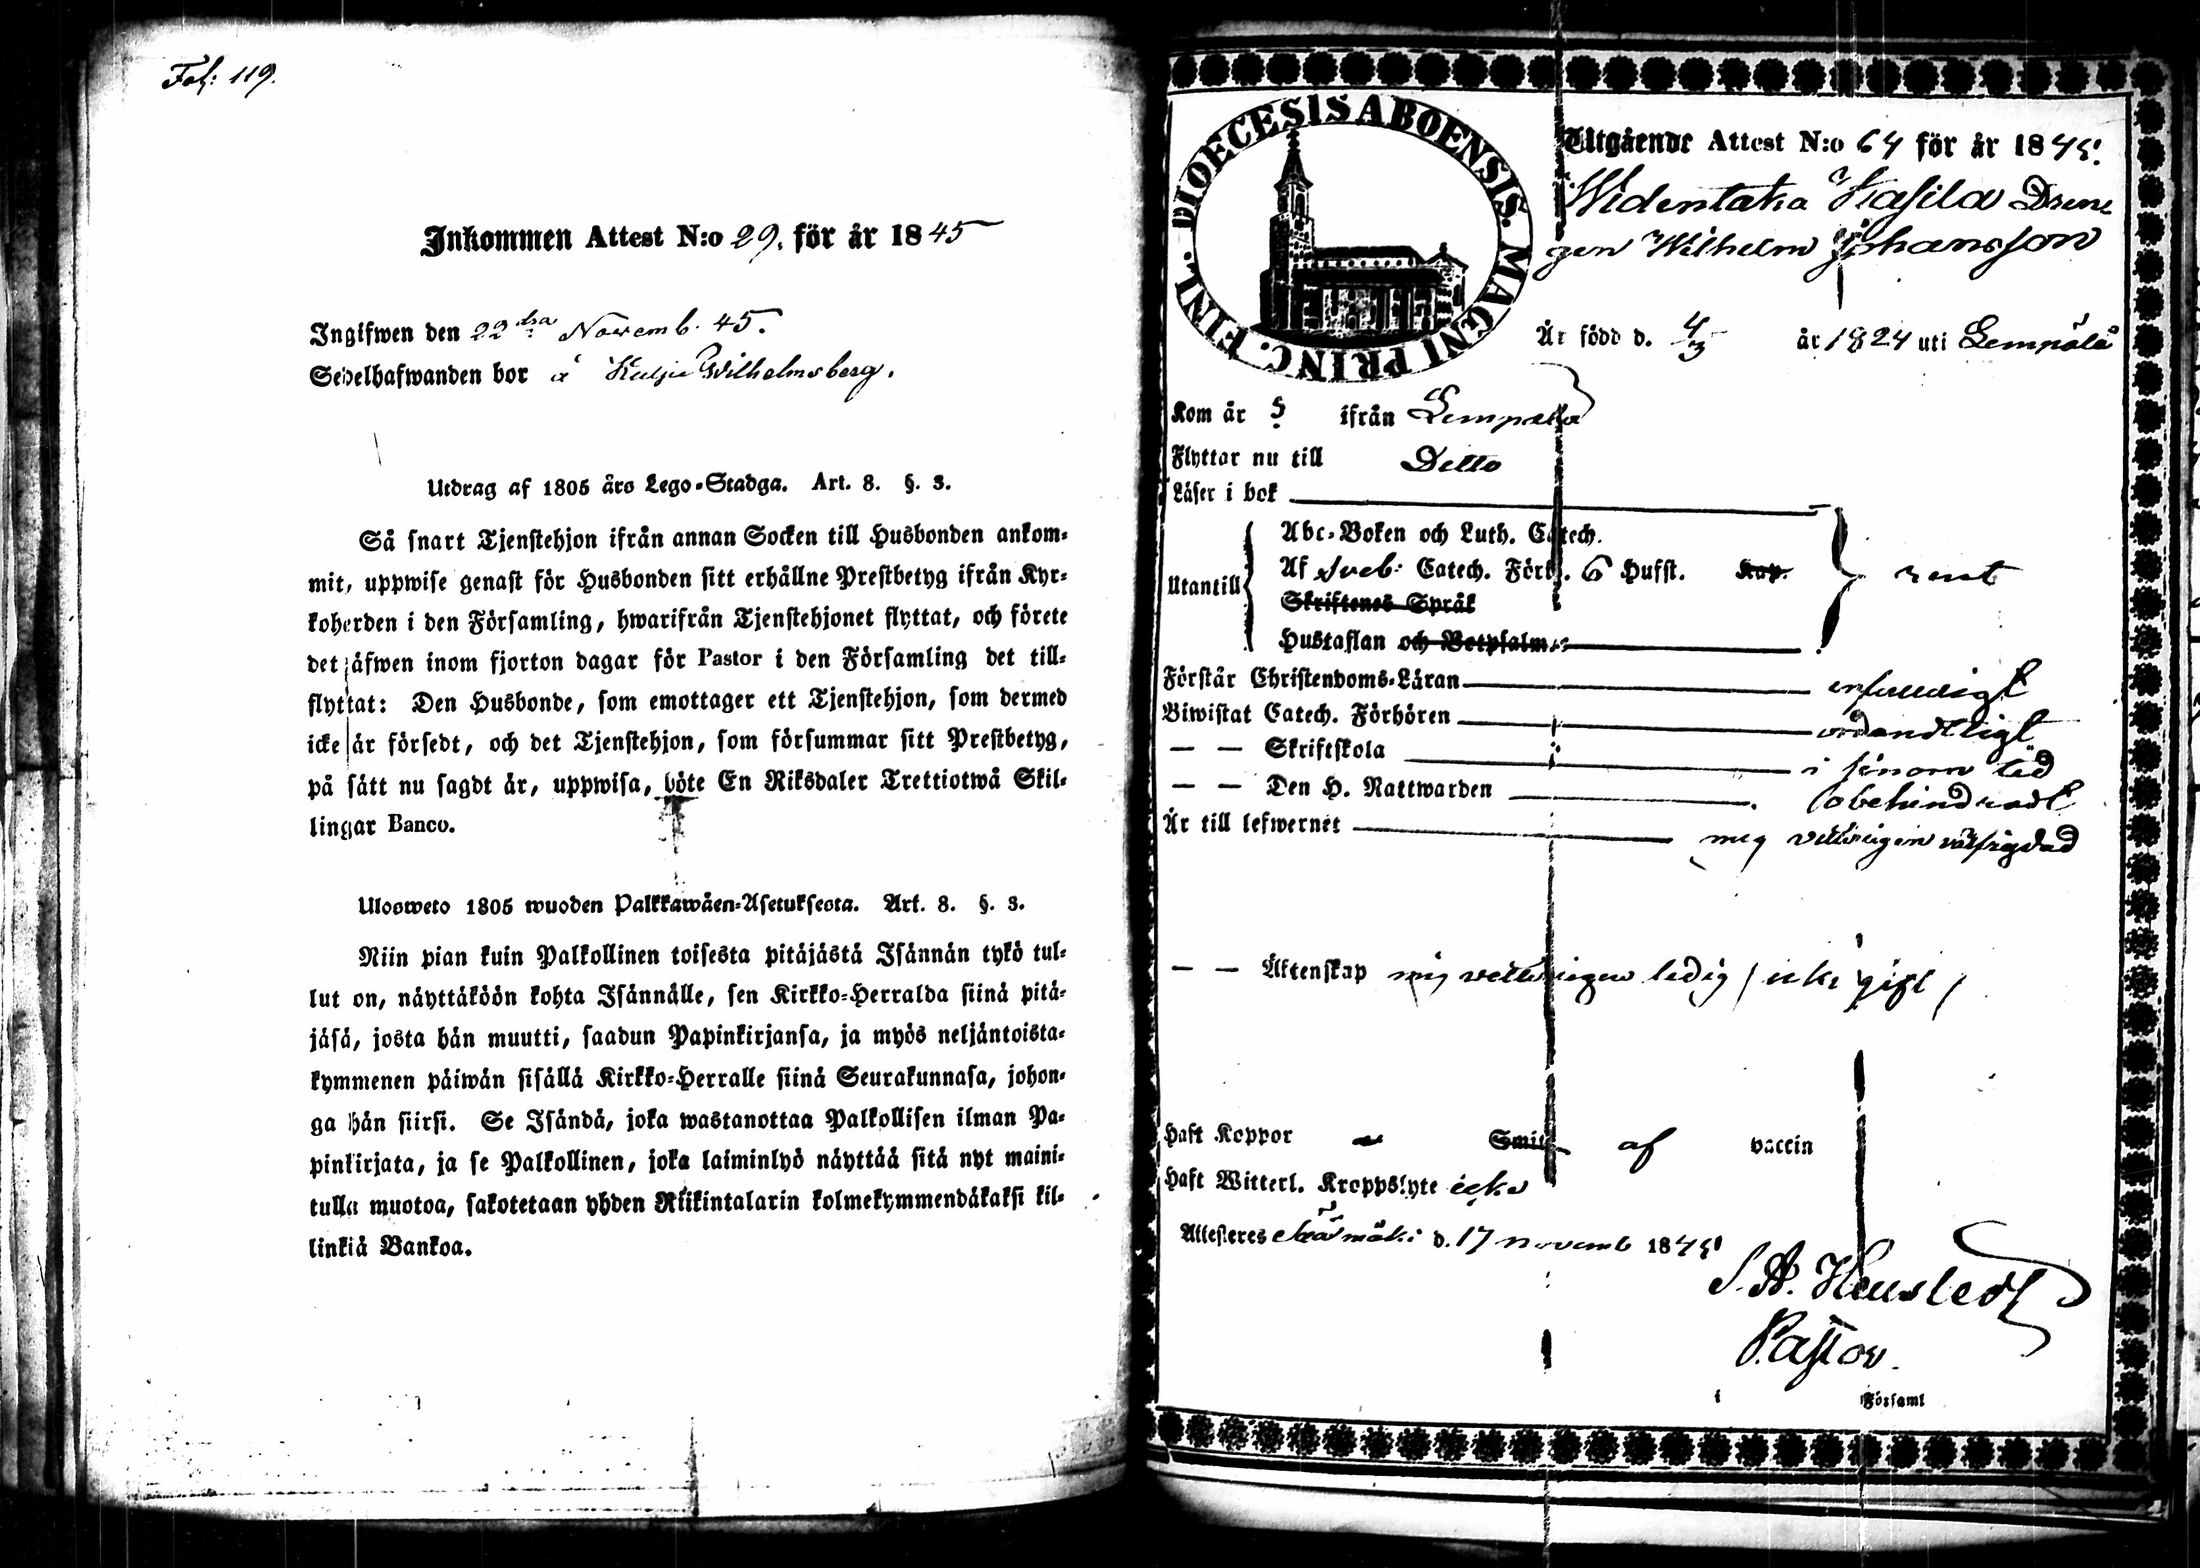 Fol: 119.
Inkommen Attest N:o 29. för år 1845
Ingifwen den 22dra Novemb. 45.
Sedelhafwanden bor å Kulju Wilhelmsberg.
Utdrag af 1805 års Lego-Stadga. Art. 8. §. 3.
Så snart Tjenstehjon ifrån annan Socken till Husbonden ankom-
mit, uppwise genast för Husbonden sitt erhållne Prestbetyg ifrån Kyr-
koherden i den Församling, hwarifrån Tjenstehjonet flyttat, och förete
det äfwen inom fjorton dagar för Pastor i den Församling det till-
flyttat: Den Husbonde, som emottager ett Tjenstehjon, som dermed
icke är försedt, och det Tjenstehjon, som försummar sitt Prestbetyg,
på sått nu sagdt är, uppwisa, böte En Riksdaler Trettiotwå Skil-
lingar Banco.
Ulosweto 1805 wuoden Palkkawäen-Asetuksesta. Art. 8. §. 3.
Niin pian kuin Palkollinen toisesta pitäjästä Isännän tykö tul-
lut on, näyttäköön kohta Isännälle, sen Kirkko-Herralda siinä pitä-
jäsä, josta hän muutti, saadun Papinkirjansa, ja myös neljäntoista-
kymmenen päiwän sisällä Kirkko-Herralle siinä Seurakunnasa, johon-
ga hän siirsi. Se Isändä, joka wastanottaa Palkollisen ilman Pa-
pinkirjata, ja se Palkollinen, joka laiminlyö näyttää sitä nyt maini-
tulla muotoa, sakotetaan yhden Riikintalarin kolmekymmendäkaksi kil-
linkiä Bankoa.
DIOECESIS ABOENSIS. MAGNI PRINC. FINL.
Utgående Attest N:o 64 för år 1845.
Widentaka Kasila Dren
gen Wilhelm Johansson
Är född d. 4/3 år 1824 uti Lempälä
Kom år ifrån Lempälä
Flyttar nu till Ditto
Läser i bok
Utantill
Abc-Boken och Luth. Catech.
Af Sveb. Catech. Förkl. 6 Hufst. Kap. rent
Skriftenes Språk
Hustaflan och Botpsalm.
Förstår Christendoms-Läran enfaldigt
Biwistat Catech. Förhören ordendtligt
— — Skriftskola i sinom tid
— — Den H. Nattwarden obehindradt
Är till lefwernet mig vitterligen
— — Äktenskap mig vitterligen ledig / icke gift /
Haft Koppor af vaccin
Haft Witterl. Kroppslyte icke
Attesteres d. 17 novemb 1845
Pastor.
i Församl